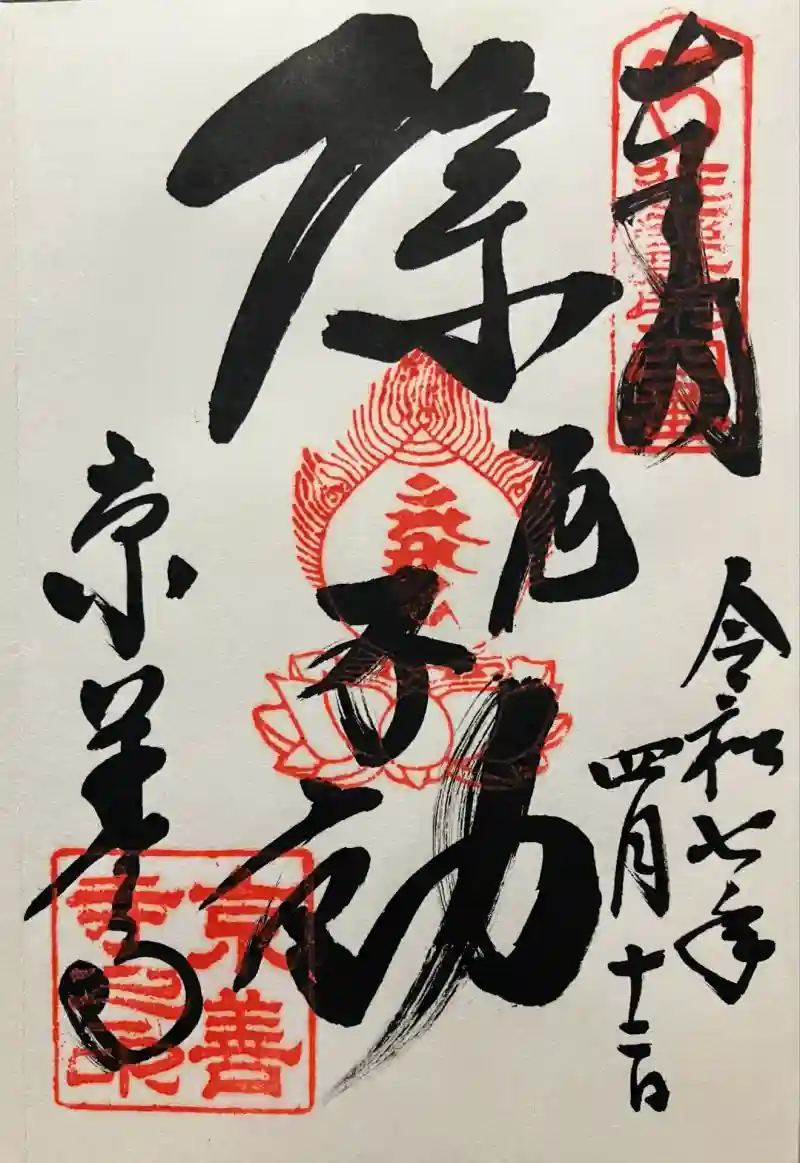 奉拝
令和七年
四月十二日
除厄
不動
京善寺
京善
寺之印